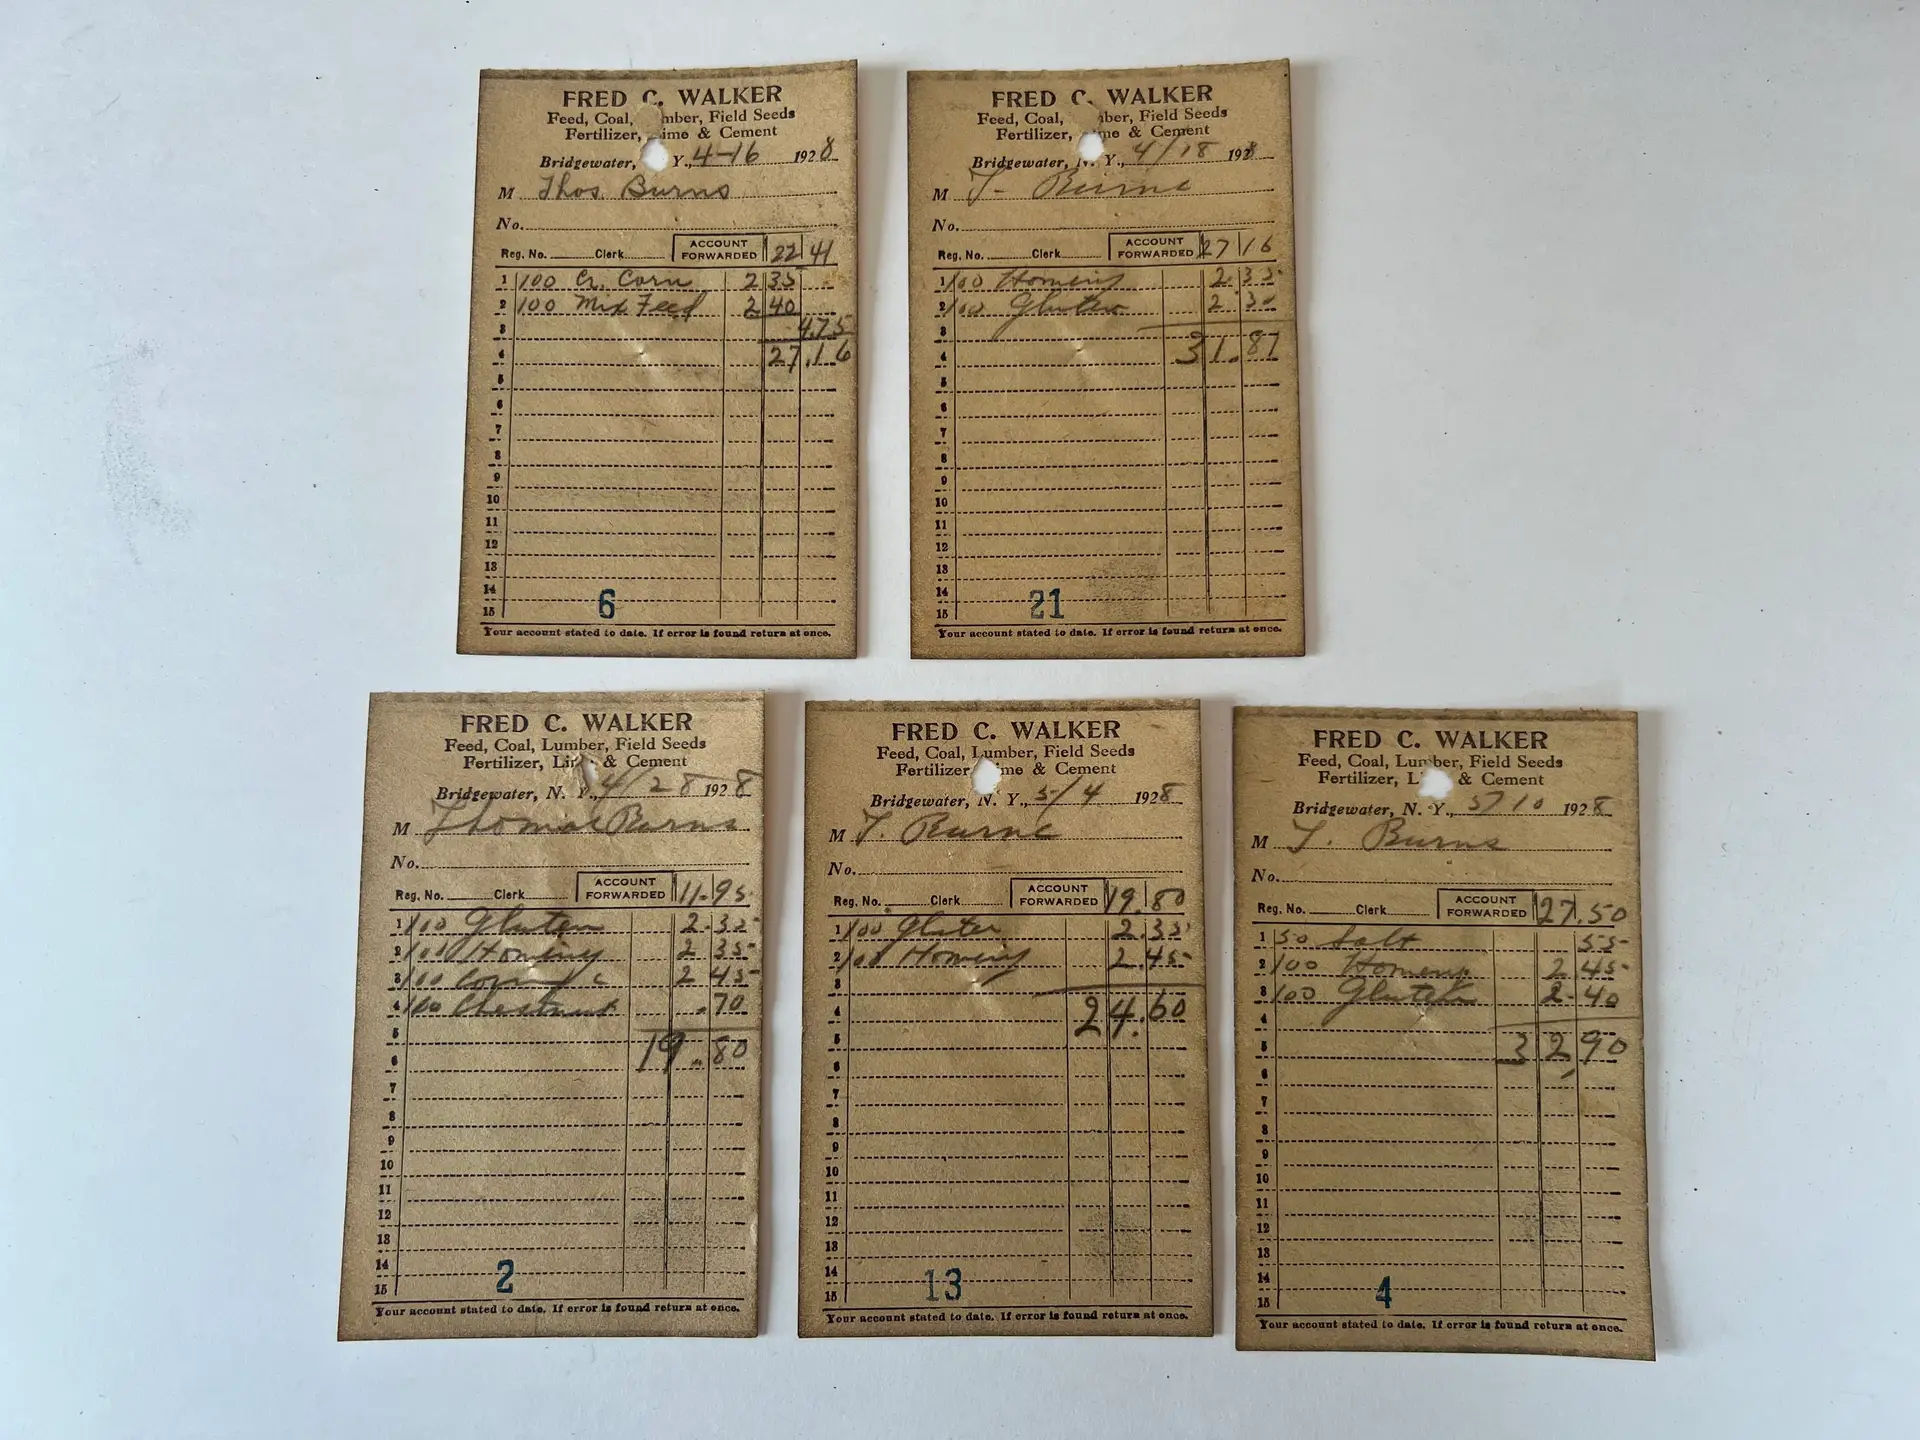 FRED C. WALKER
Feed, Coal, mber, Field Seeds
Fertilizer, ime & Cement
Bridgewater, Y., 4-16 1928
M Thos Burns
No.
Reg. No. Clerk ACCOUNT FORWARDED 22 41
1 100 Cr. Corn 2 35
2 100 Mix Feed 2 40
3 4.75
4 27.16
5
6
7
8
9
10
11
12
13
14
15
6
Your account stated to date. If error is found return at once.
FRED C. WALKER
Feed, Coal, mber, Field Seeds
Fertilizer, me & Cement
Bridgewater, N. Y., 4/18 1928
M T- Burns
No.
Reg. No. Clerk ACCOUNT FORWARDED 27 16
1 100 Homeny 2.35
2 100 Gluten 2.3
3
4 31.87
5
6
7
8
9
10
11
12
13
14
15
21
Your account stated to date. If error is found return at once.
FRED C. WALKER
Feed, Coal, Lumber, Field Seeds
Fertilizer, Lim & Cement
Bridgewater, N. Y., 4/28 1928
M Thomas Burns
No.
Reg. No. Clerk ACCOUNT FORWARDED 11.95
1 100 Gluten 2.35
2 100 Hominy 2 35
3 100 Corn 2 45
4 100 Chestnut .70
5
6 19.80
7
8
9
10
11
12
13
14
15
2
Your account stated to date. If error is found return at once.
FRED C. WALKER
Feed, Coal, Lumber, Field Seeds
Fertilizer, ime & Cement
Bridgewater, N. Y., 5/4 1928
M T. Burns
No.
Reg. No. Clerk ACCOUNT FORWARDED 19.80
1 100 Gluten 2.35
2 100 Hominy 2.45
3
4 24.60
5
6
7
8
9
10
11
12
13
14
15
13
Your account stated to date. If error is found return at once.
FRED C. WALKER
Feed, Coal, Lumber, Field Seeds
Fertilizer, L & Cement
Bridgewater, N. Y., 5/10 1928
M T. Burns
No.
Reg. No. Clerk ACCOUNT FORWARDED 27.50
1 50 Salt 55
2 100 Homeny 2.45
3 100 Gluten 2.40
4
5 32.90
6
7
8
9
10
11
12
13
14
15
4
Your account stated to date. If error is found return at once.